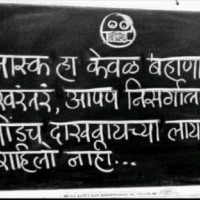 मास्क हा केवळ बहाणा
खरंतरं, आपण निसर्गाला
तोंडच दाखवायच्या लाय
राहिलो नाही...